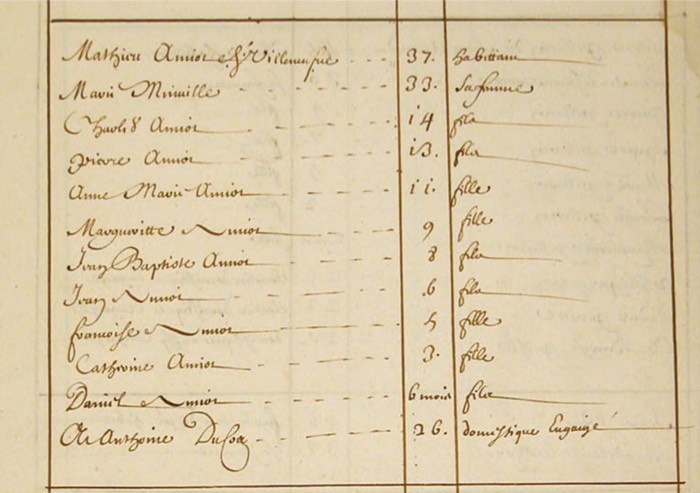 Mathieu Amiot Sr Villeneufue 37. habittant
Marie Miuille 33. sa femme
Charles Amiot 14 fils
pierre Amiot 13. fils
Anne Marie Amiot 11. fille
Margueritte Amiot 9 fille
Jean Baptiste Amiot 8 fils
Jean Amiot 6 fils
francoise Amiot 5 fille
Catherine Amiot 3. fille
Daniel Amiot 6 mois fils
Anthoine 26. domistique Engaigé